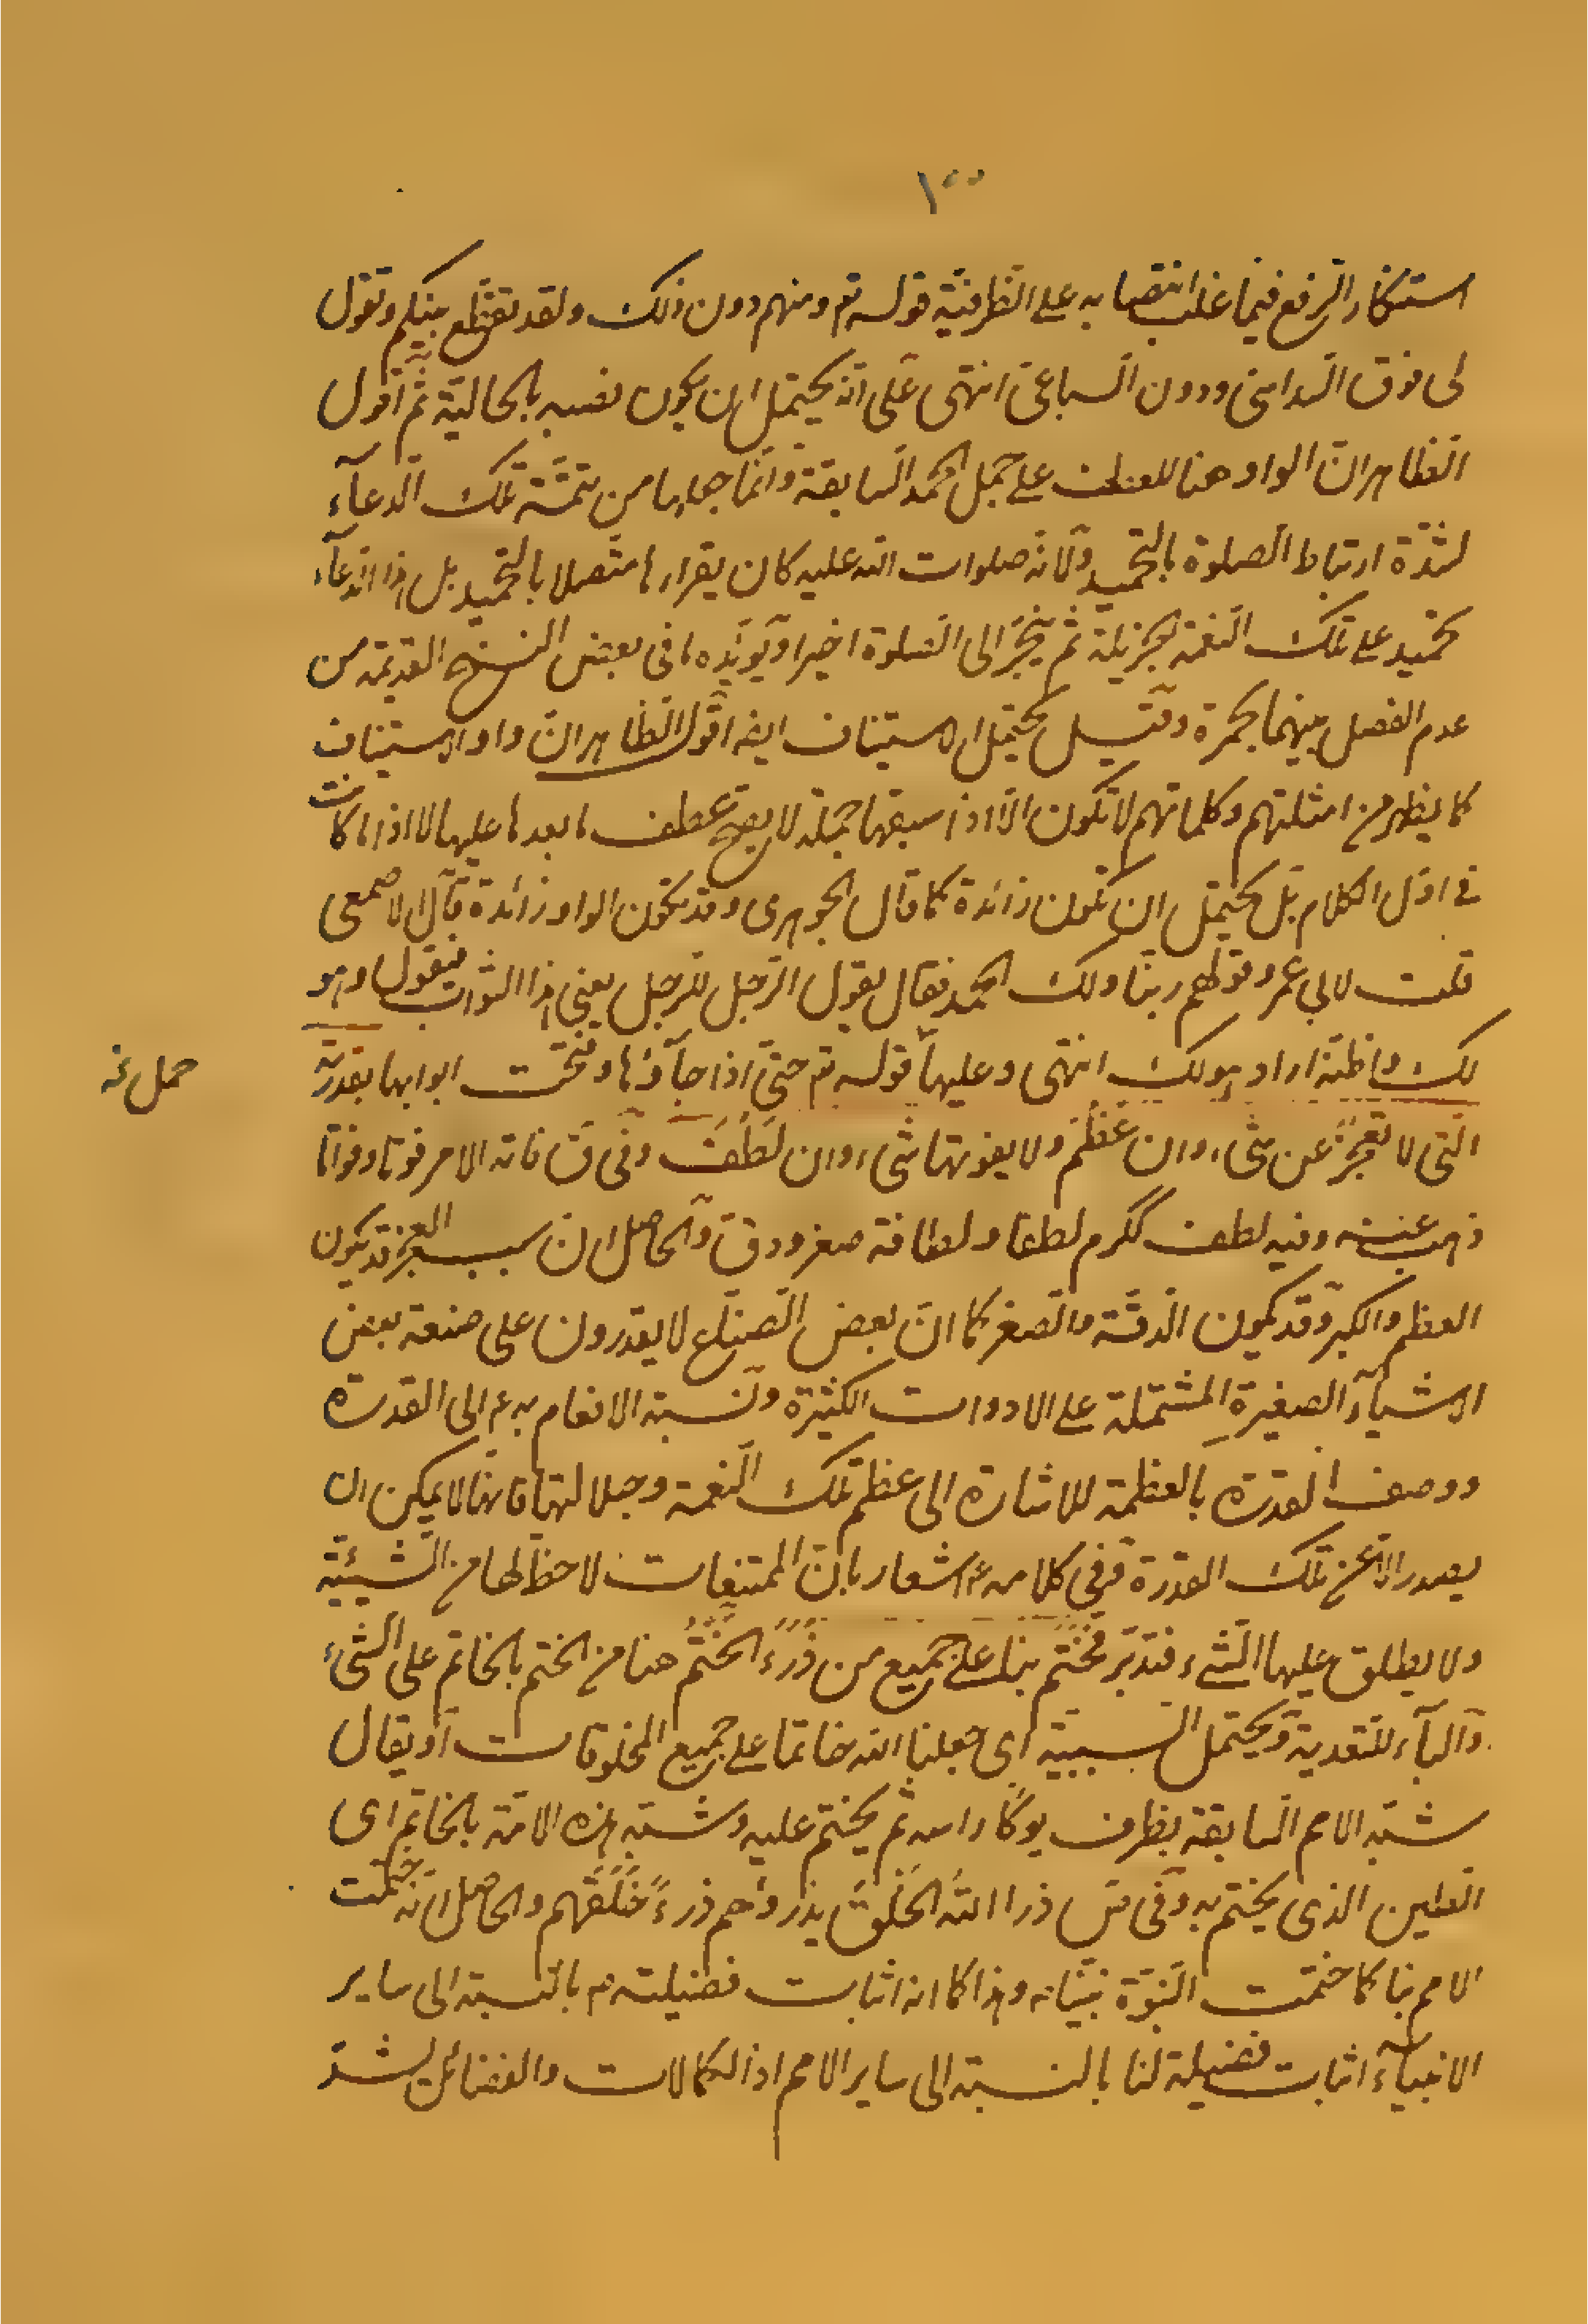 ١٠٠
استنكار الرفع فيما غلب انتصابه على الظرفيّة قوله تع ومنهم دون ذلك ولقد تقطّع بينكم وتقول
لى فوق السداسى ودون السباعىّ انتهى على انّه يحتمل ان يكون نصبه بالحاليّة ثمّ اقول
الظاهر انّ الواو هنا للعطف على جمل الحمد السابقة وانّما جعلها من تتمّة تلك الدعآء
لشدّة ارتباط الصلوة بالتحميد ولانّه صلوات الله عليه كان يقرأها متّصلا بالتحميد بل هذا الدعآء
تحميد على تلك النعمة الجزيلة ثمّ ينجرّ الى الصلوة اخيرا ويؤيّده ما فى بعض النسخ القديمة من
عدم الفصل بينهما بحمرة وقيل يحتمل الاستيناف ايضا اقول الظاهر انّ واو الاستيناف
كما يظهر من امثلتهم وكلماتهم لا تكون الّا اذا سبقها جملة لا يصحّ عطف ما بعدها عليها لا اذا ما كانت
فى اوّل الكلام بل يحتمل ان تكون زائدة كما قال الجوهرى وقد تكون الواو زائدة قال الاصمعى
قلت لابى عمرو قولهم ربّنا ولك الحمد فقال يقول الرّجل للرّجل بعنى هذا الثوب فيقول وهو
لك واظنّه اراد هو لك انتهى وعليها قوله تع حتّى اذا جآؤها وفتحت ابوابها بقدرته
حمل نه
الّتى لا تعجز عن شىء وان عَظُمَ ولا يفوتها شىء وان لَطُفَ وفى ق فاته الامر فوتا وفواتا
ذهب عنه وفيه لطف ككرم لطفا ولطافة صغر ودقّ والحاصل ان سبب العجز قد يكون
العظم والكبر وقد يكون الدقّة والصغر كما انّ بعض الصنّاع لا يقدرون على صنعة بعض
الاشيآء الصغيرة المشتملة على الادوات الكثيرة ونسبة الانعام به ع الى القدرة
ووصف القدرة بالعظمة للاشارة الى عظم تلك النّعمة وجلالتها فانّها لا يمكن ان
يصدر الّا عن تلك القدرة وفى كلامه ع اشعار بانّ الممتنعات لا حظّ لها من الشّيئيّة
ولا يطلق عليها الشىء فتدبّر فَخَتَمَ بنا على جميع من ذَرَءَ الختم هنا من الختم بالخاتم على الشّىء
والبآء للتعدية ويحتمل السببيّة اى جعلنا الله خاتما على جميع المخلوقات او يقال
شبّه الامم السابقة بظرف يوكأ راسه ثم يختم عليه وشبّه هذه الامّة بالخاتم اى
الطين الذى يختم به وفى س ذرا اللهُ الخَلْقَ يذرؤهم ذرءً خَلَقَهم والحاصل انّه ختمت
الامم بنا كما ختمت النبوّة بنبيّنا ص وهذا كما انه اثبات فضيلته م بالنسبة الى ساير
الانبيآء اثبات فضيلة لنا بالنسبة الى ساير الامم اذ الكمالات والفضائل يشتدّ